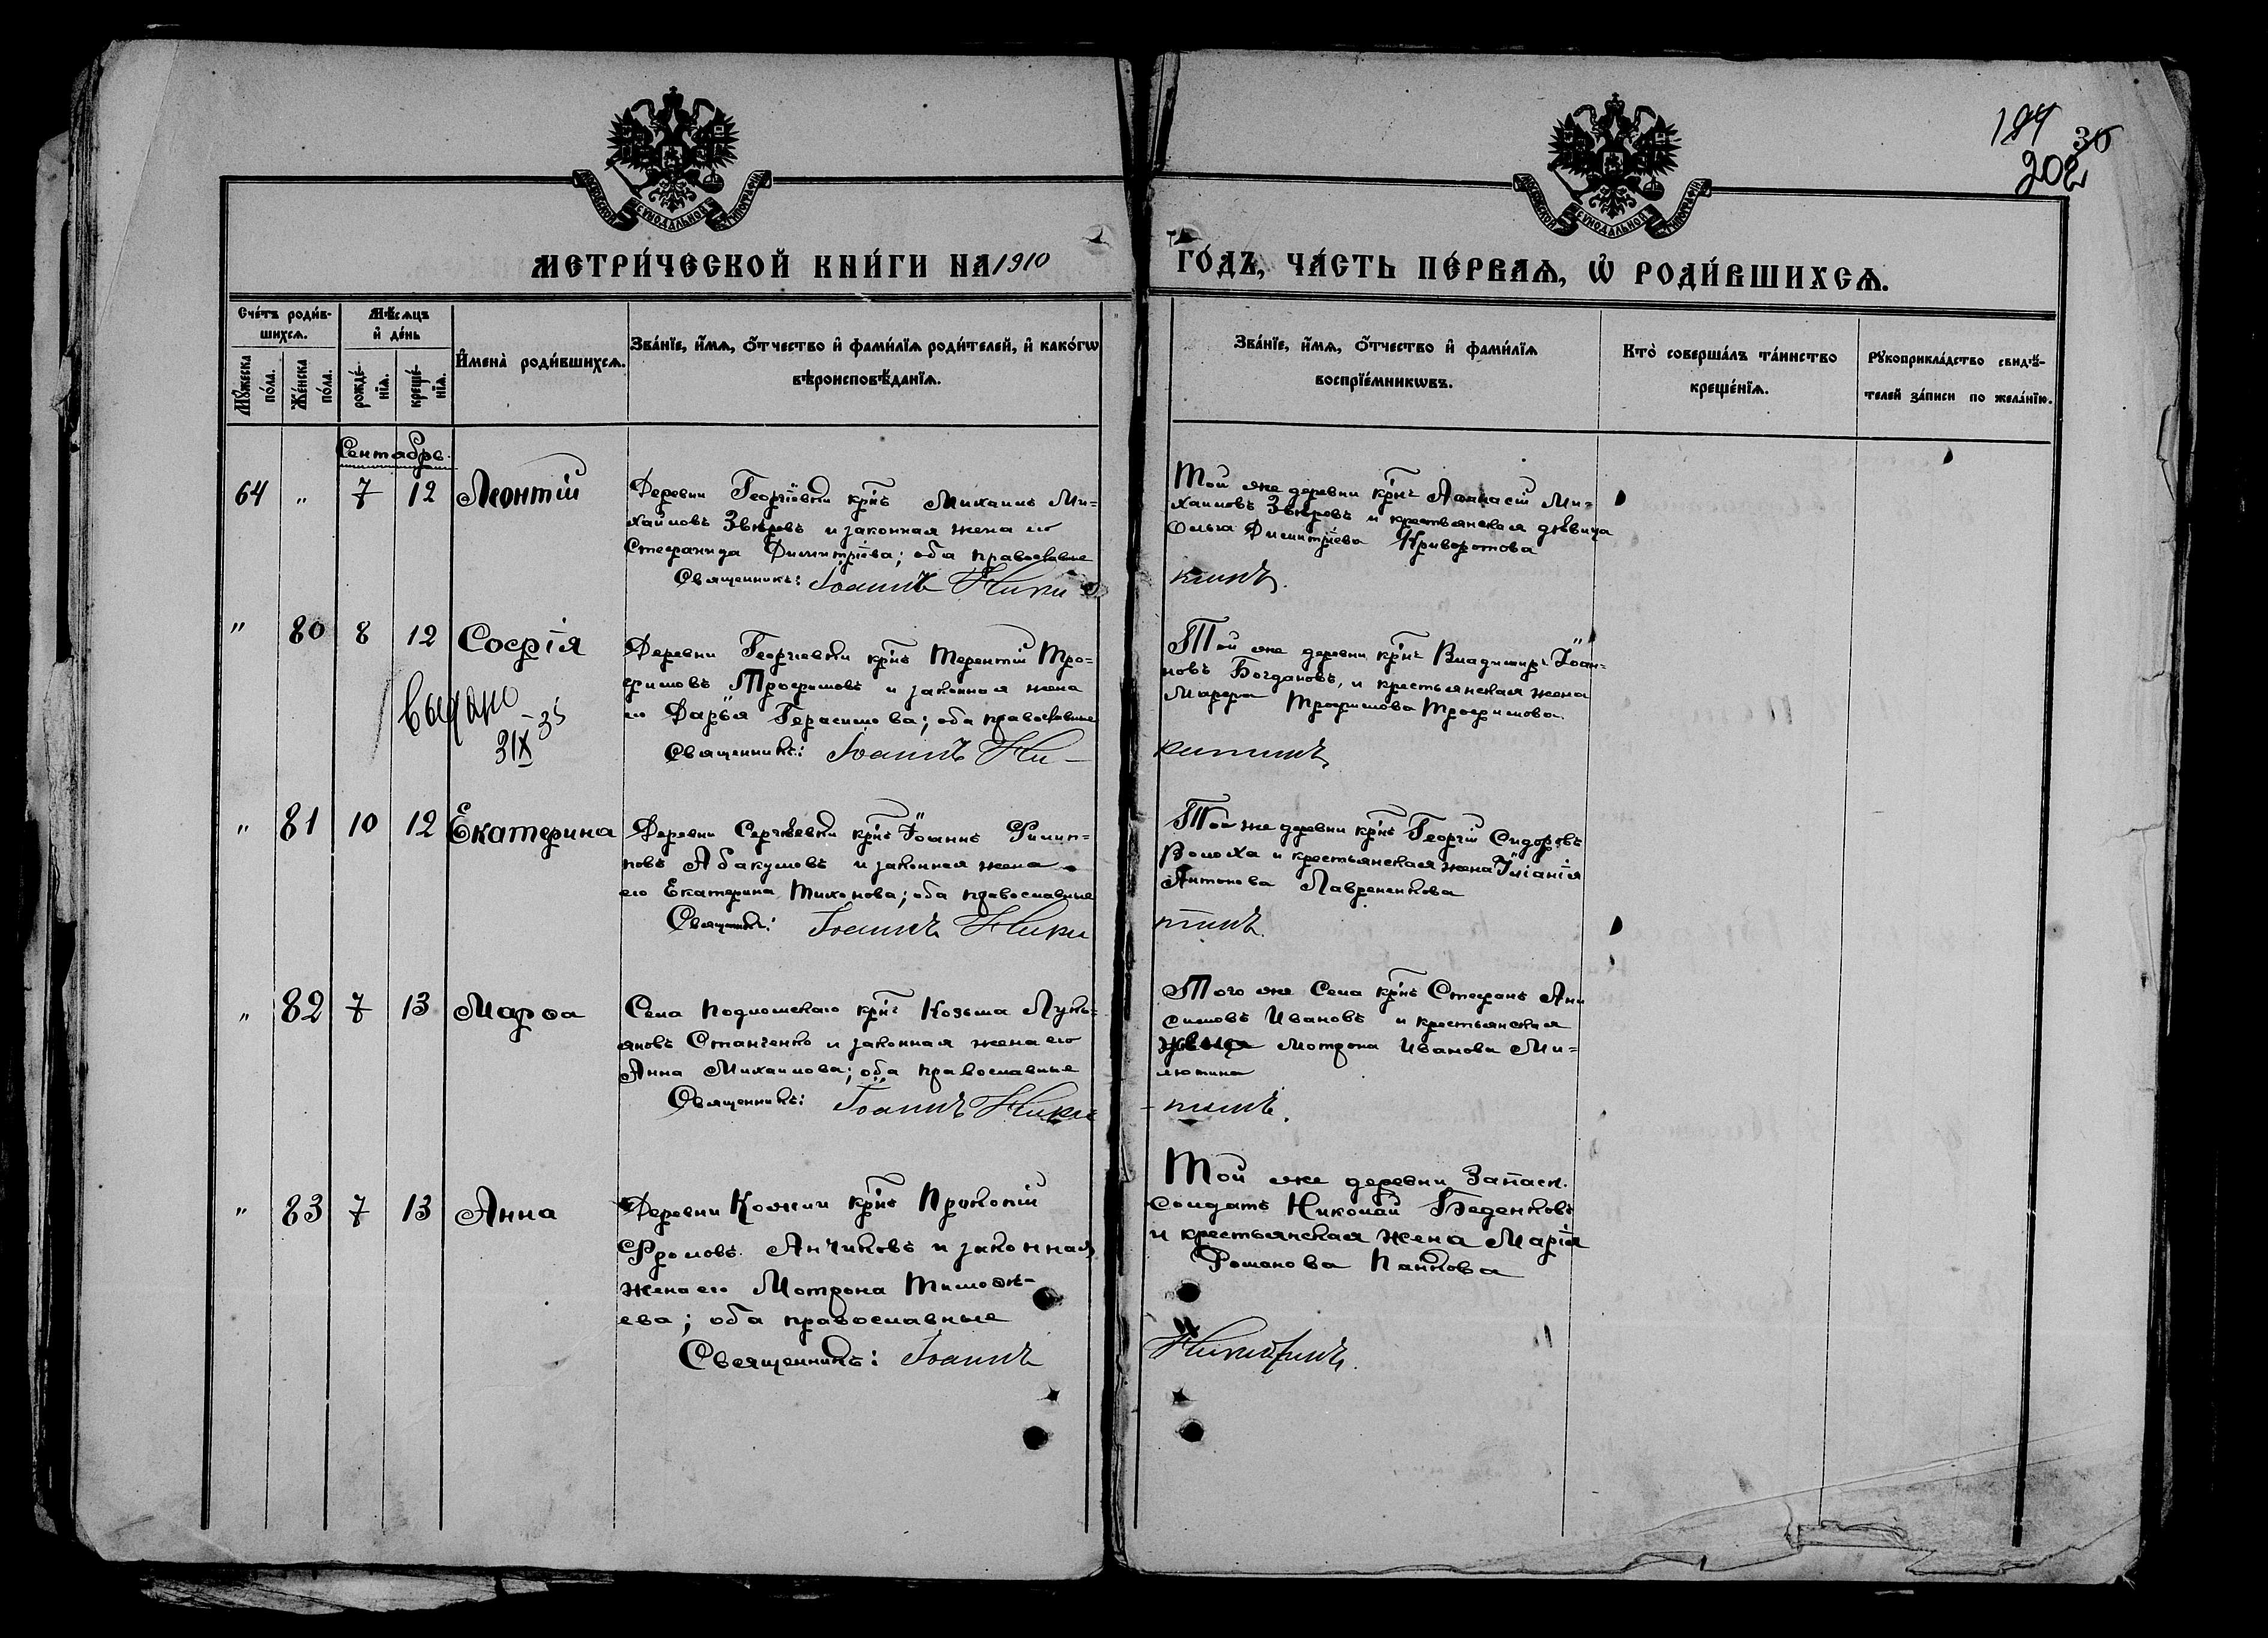 184 36
202
МОСКОВСКОЙ СѴНОДАЛЬНОЙ ТИПОГРАФІИ
МОСКОВСКОЙ СѴНОДАЛЬНОЙ ТИПОГРАФІИ
МЕТРИ́ЧЕСКОЙ КНИ́ГИ НА 1910 ГО́ДЪ, ЧА́СТЬ ПЕ́РВАѦ, Ѡ҆ РОДИ́ВШИХСѦ.
Сче́тъ роди́в-
шихсѧ.
Мꙋ́жеска по́ла.
Же́нска по́ла.
Мѣ́сѧцъ
и҆ де́нь
рожде́-нїѧ.
креще́-нїѧ.
И҆мена̀ роди́вшихсѧ.
Зва́нїе, и҆́мѧ, ѻ҆́тчество и҆ фами́лїѧ роди́телей, и҆ како́гѡ
вѣроисповѣ́данїѧ.
Зва́нїе, и҆́мѧ, ѻ҆́тчество и҆ фами́лїѧ
воспрїе́мникѡвъ.
Кто̀ соверша́лъ та́инство
креще́нїѧ.
Рꙋкоприкла́дство свидѣ́-
телей за́писи по жела́нїю.
Сентабрь
64 " 7 12 Леонтій
Деревни Георгіевки крнъ Михаилъ Ми-
хайловъ Звѣровъ и законная жена его
Стефанида Димитріева; оба православные
Священникъ: Іоаннъ Ники
Той же деревни крнъ Аѳанасій Ми-
хаиловъ Звѣровъ и крестьянская дѣвица
Ольга Димитріева Криворотова
" 80 8 12 Софія
Выдано
3 IX – 35
Деревни Георгіевки крнъ Терентій Тро-
фимовъ Трофимовъ и законная жена
его Дарья Герасимова; оба православные
Священникъ: Іоаннъ Ни-
Той же деревни крнъ Владимиръ Іоан-
новъ Богдановъ, и крестьянская жена
Марфа Трофимова Трофимова.
китинъ
" 81 10 12 Екатерина
Деревни Сергіевки крнъ Іоаннъ Филип-
повъ Абакумовъ и законная жена
его Екатерина Тихонова; оба православные
Священникъ: Іоаннъ Ники
Той же деревни крнъ Георгій Сидоровъ
Волоха и крестьянская жена Іуліанія
Антонова Лаврененкова
тинъ.
" 82 7 13 Марѳа
Села крнъ Козьма Лукь-
яновъ Станченко и законная жена его
Анна Михаилова; оба православные
Священникъ: Іоаннъ Ники
Того же Села крнъ Стефанъ Ани
симовъ Ивановъ и крестьянская
дѣвица Мотрона Иванова Ми-
лютина
- тинъ.
" 83 7 13 Анна
Деревни крнъ Прокопій
Фроловъ Анчиковъ и законная
жена его Мотрона Тимоѳѣ-
ева; оба православные
Священникъ: Іоаннъ
Той же деревни Запасн.
солдатъ Николай Беденковъ
и крестьянская жена Марія
Романова Панкова
Никитинъ.